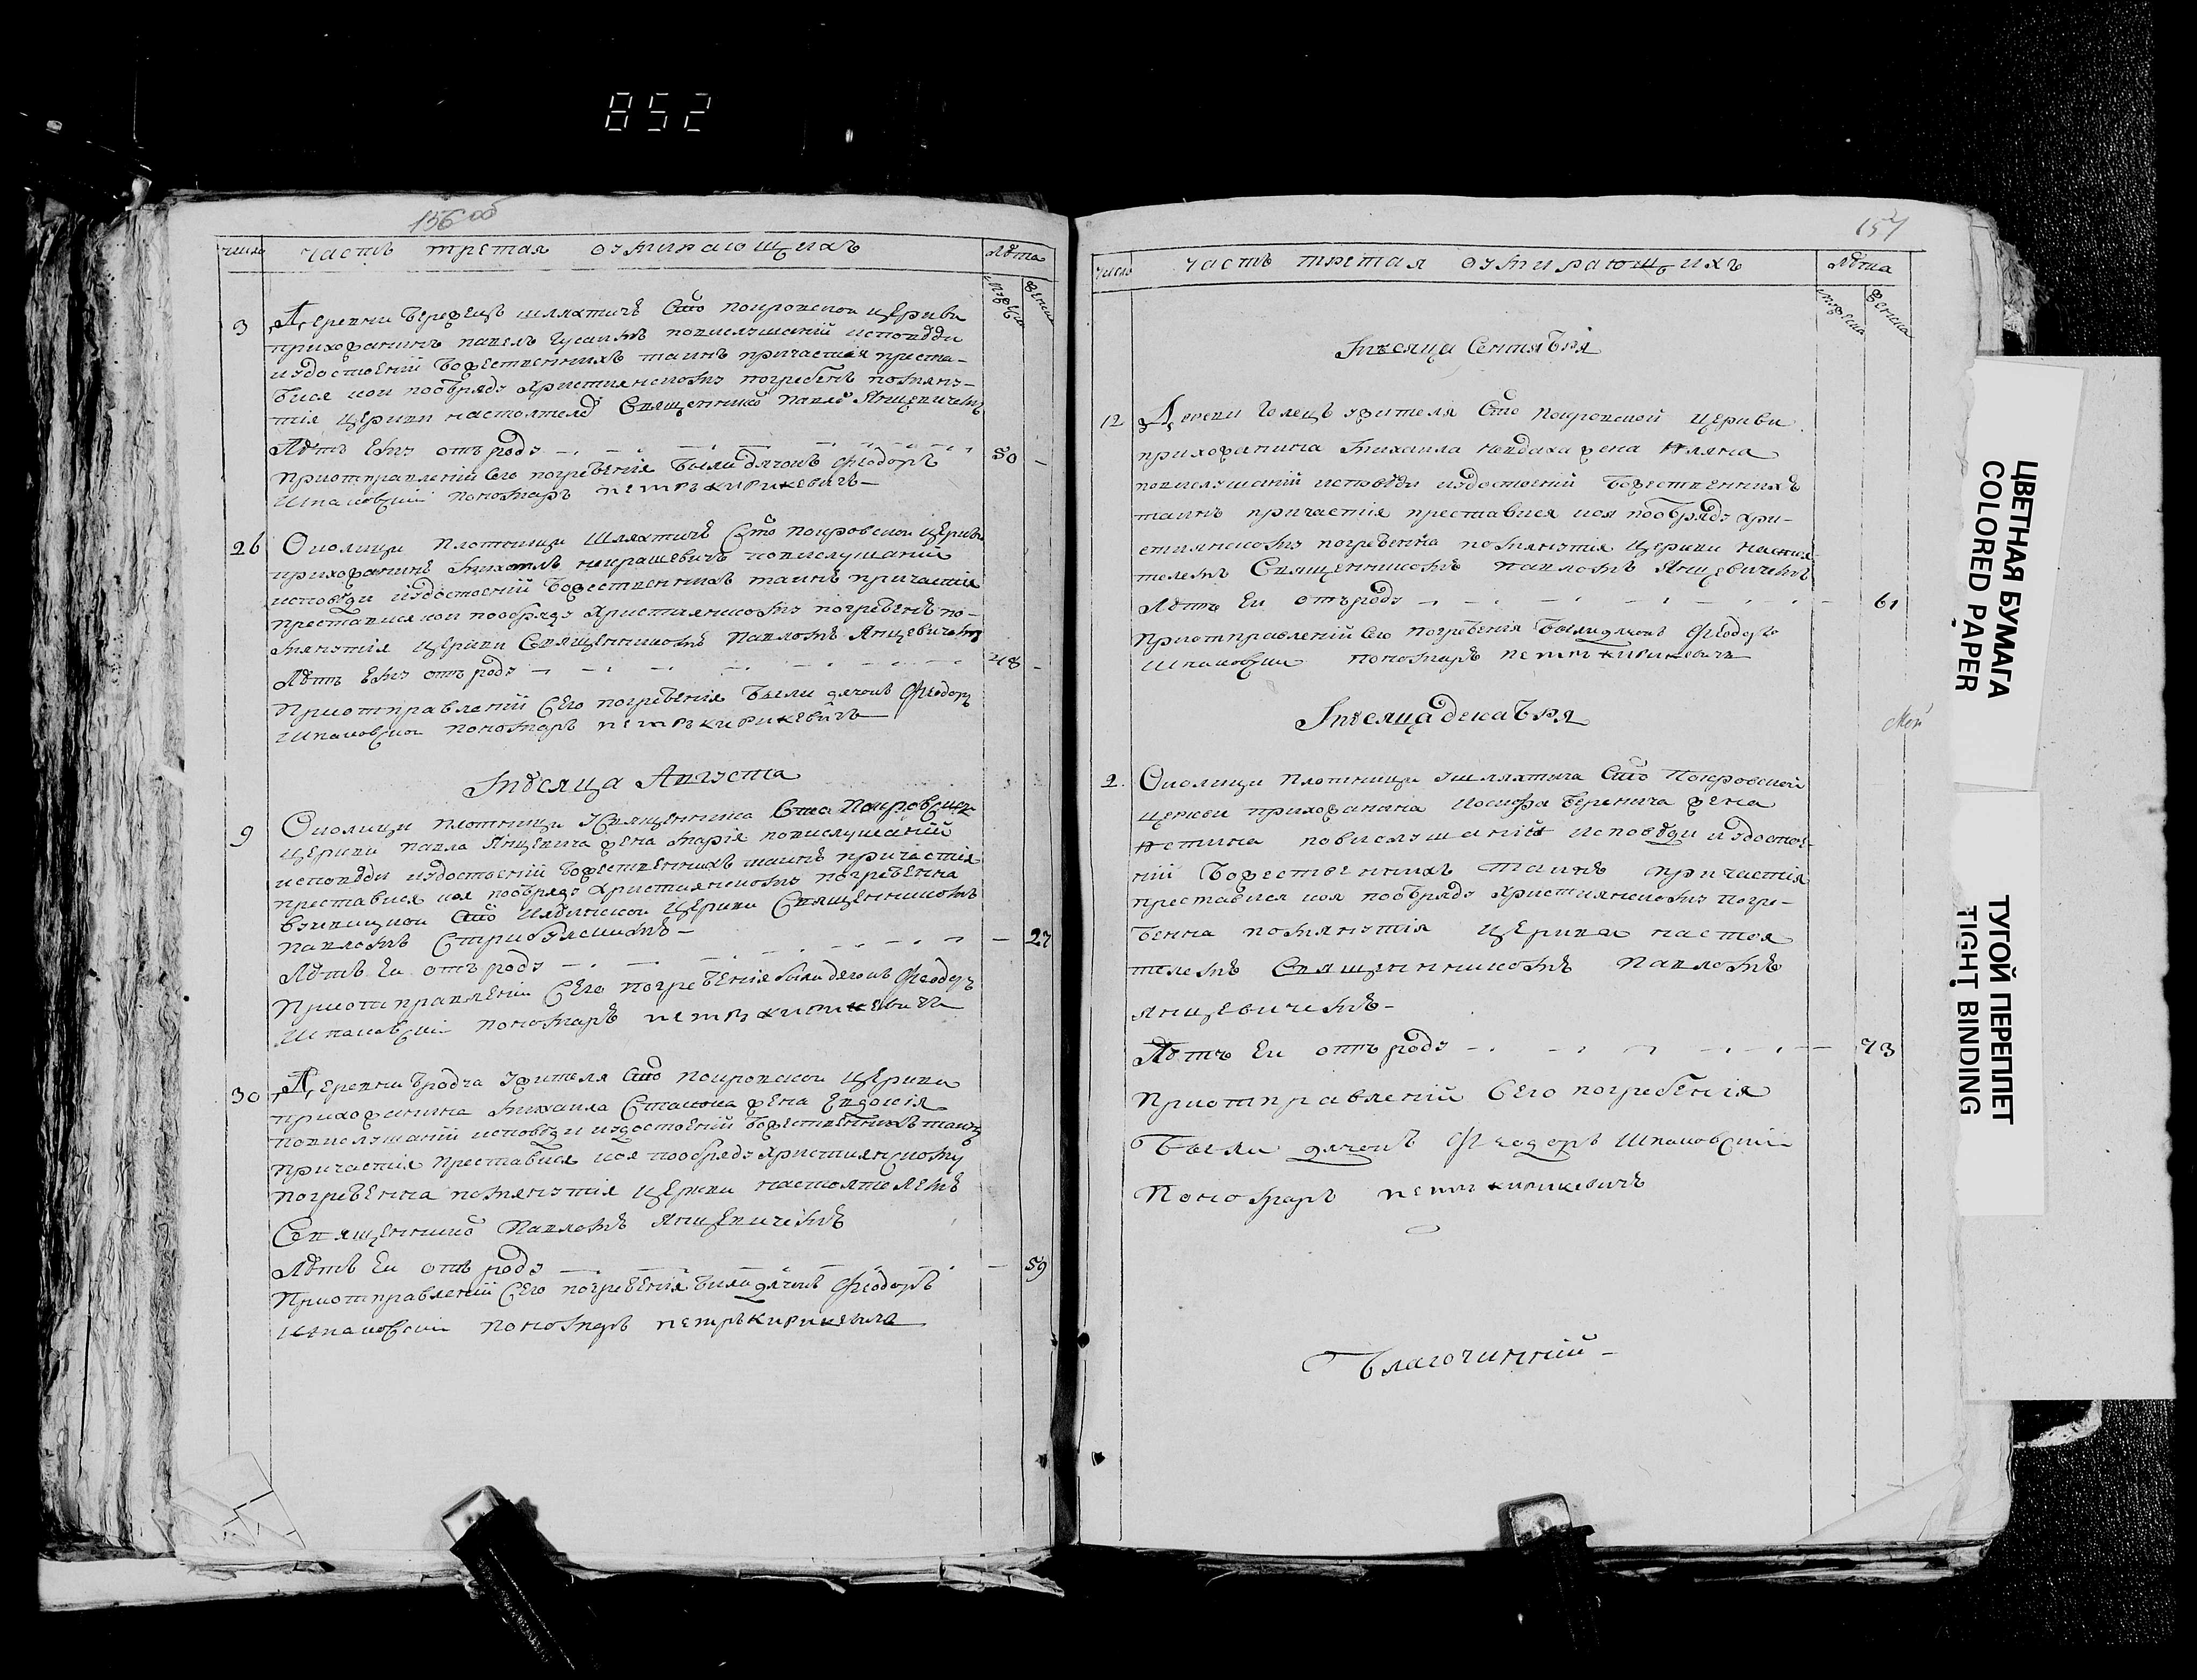 852
156 об
число часть третая оумирающихъ лѣта
мужеска женска
3 Деревни Бережецъ шляхтичъ Сто покровской церкви
прихожанинъ павелъ повислушаній исповѣди
иудостоеній Божественнихъ таинъ причастия преста-
вися кои пообряду християнскому погребенъ помяну-
тія церкви настоятеле Священнико Павло Янцевичемъ
Лѣтъ Ему отъ роду 50
Приотправленій Сего погребенія были дячокъ Феодоръ
Шпаковскій пономаръ петръ кирикевичъ
26 Околици плотници шляхтичъ Сто покровской церкви
прихожанинъ некрашевичъ повислушаній
исповѣди иудостоеній Божественнихъ таинъ причастія
преставися кои пообряду християнскому погребенъ по-
мянутія церкви Священникомъ Павломъ Янцевичемъ
Лѣтъ Ему отъ роду 48
Приотправленій Сего погребенія были дячокъ Феодоръ
Шпаковскій пономаръ петръ кирикевичъ
Мѣсяца Августа
9 Околици плотници уСвященника Сто Покровской
церкви павла Янцевича жена марія повислушаній
исповѣди иудостоеній Божественнихъ таинъ причастія
преставися коя пообряду християнскому погребенна
Сто церкви Священникомъ
павломъ
Лѣтъ Еи отъ роду 27
Приотправленій Сего погребенія были дячокъ Феодоръ
Шпаковскій пономаръ петръ кирикевичъ
30 Деревни Бродча жителя Сто покровской церкви
прихожанина михаила жена Евдокія
повислушаній исповѣди иудостоеній Божественнихъ таинъ
причастія преставися коя пообряду християнскому
погребенна помянутія церкви настоятелемъ
Священнико Павломъ Янцевичемъ
Лѣтъ Еи отъ роду 59
Приотправленій Сего погребенія были дячокъ Феодоръ
Шпаковскій пономаръ петръ кирикевичъ
157
число часть третая оумирающихъ лѣта
мужеска женска
Мѣсяца Сентября
12 Деревни Голецъ жителя Сто покровской церкви
прихожанина михаила жена
повислушаній исповѣди иудостоеній Божественнихъ
таинъ причастія преставися коя пообряду хри-
стиянскому погребенна помянутія церкви настоя-
телемъ Священникомъ павломъ Янцевичемъ
Лѣтъ Еи отъ роду 61
Приотправленій Сего погребенія были дячокъ Феодоръ
Шпаковскій пономаръ петръ кирикевичъ
Мѣсяца декабря
2. Околици плотници ушляхтича Сто Покровской
церкви прихожанина Иосифа жена
повислушаній исповѣди иудостое-
ній Божественнихъ таинъ причастія
преставися коя пообряду християнскому погре-
бенна помянутія церкви настоя
телемъ Священникомъ павломъ
янцевичемъ-
Лѣтъ Еи отъ роду 73
Приотправленій Сего погребенія
Были дячокъ Феодоръ Шпаковскій
Пономаръ петръ кирикевичъ
Благочинній-
ЦВЕТНАЯ БУМАГА
COLORED PAPER
ТУГОЙ ПЕРЕПЛЕТ
TIGHT BINDING